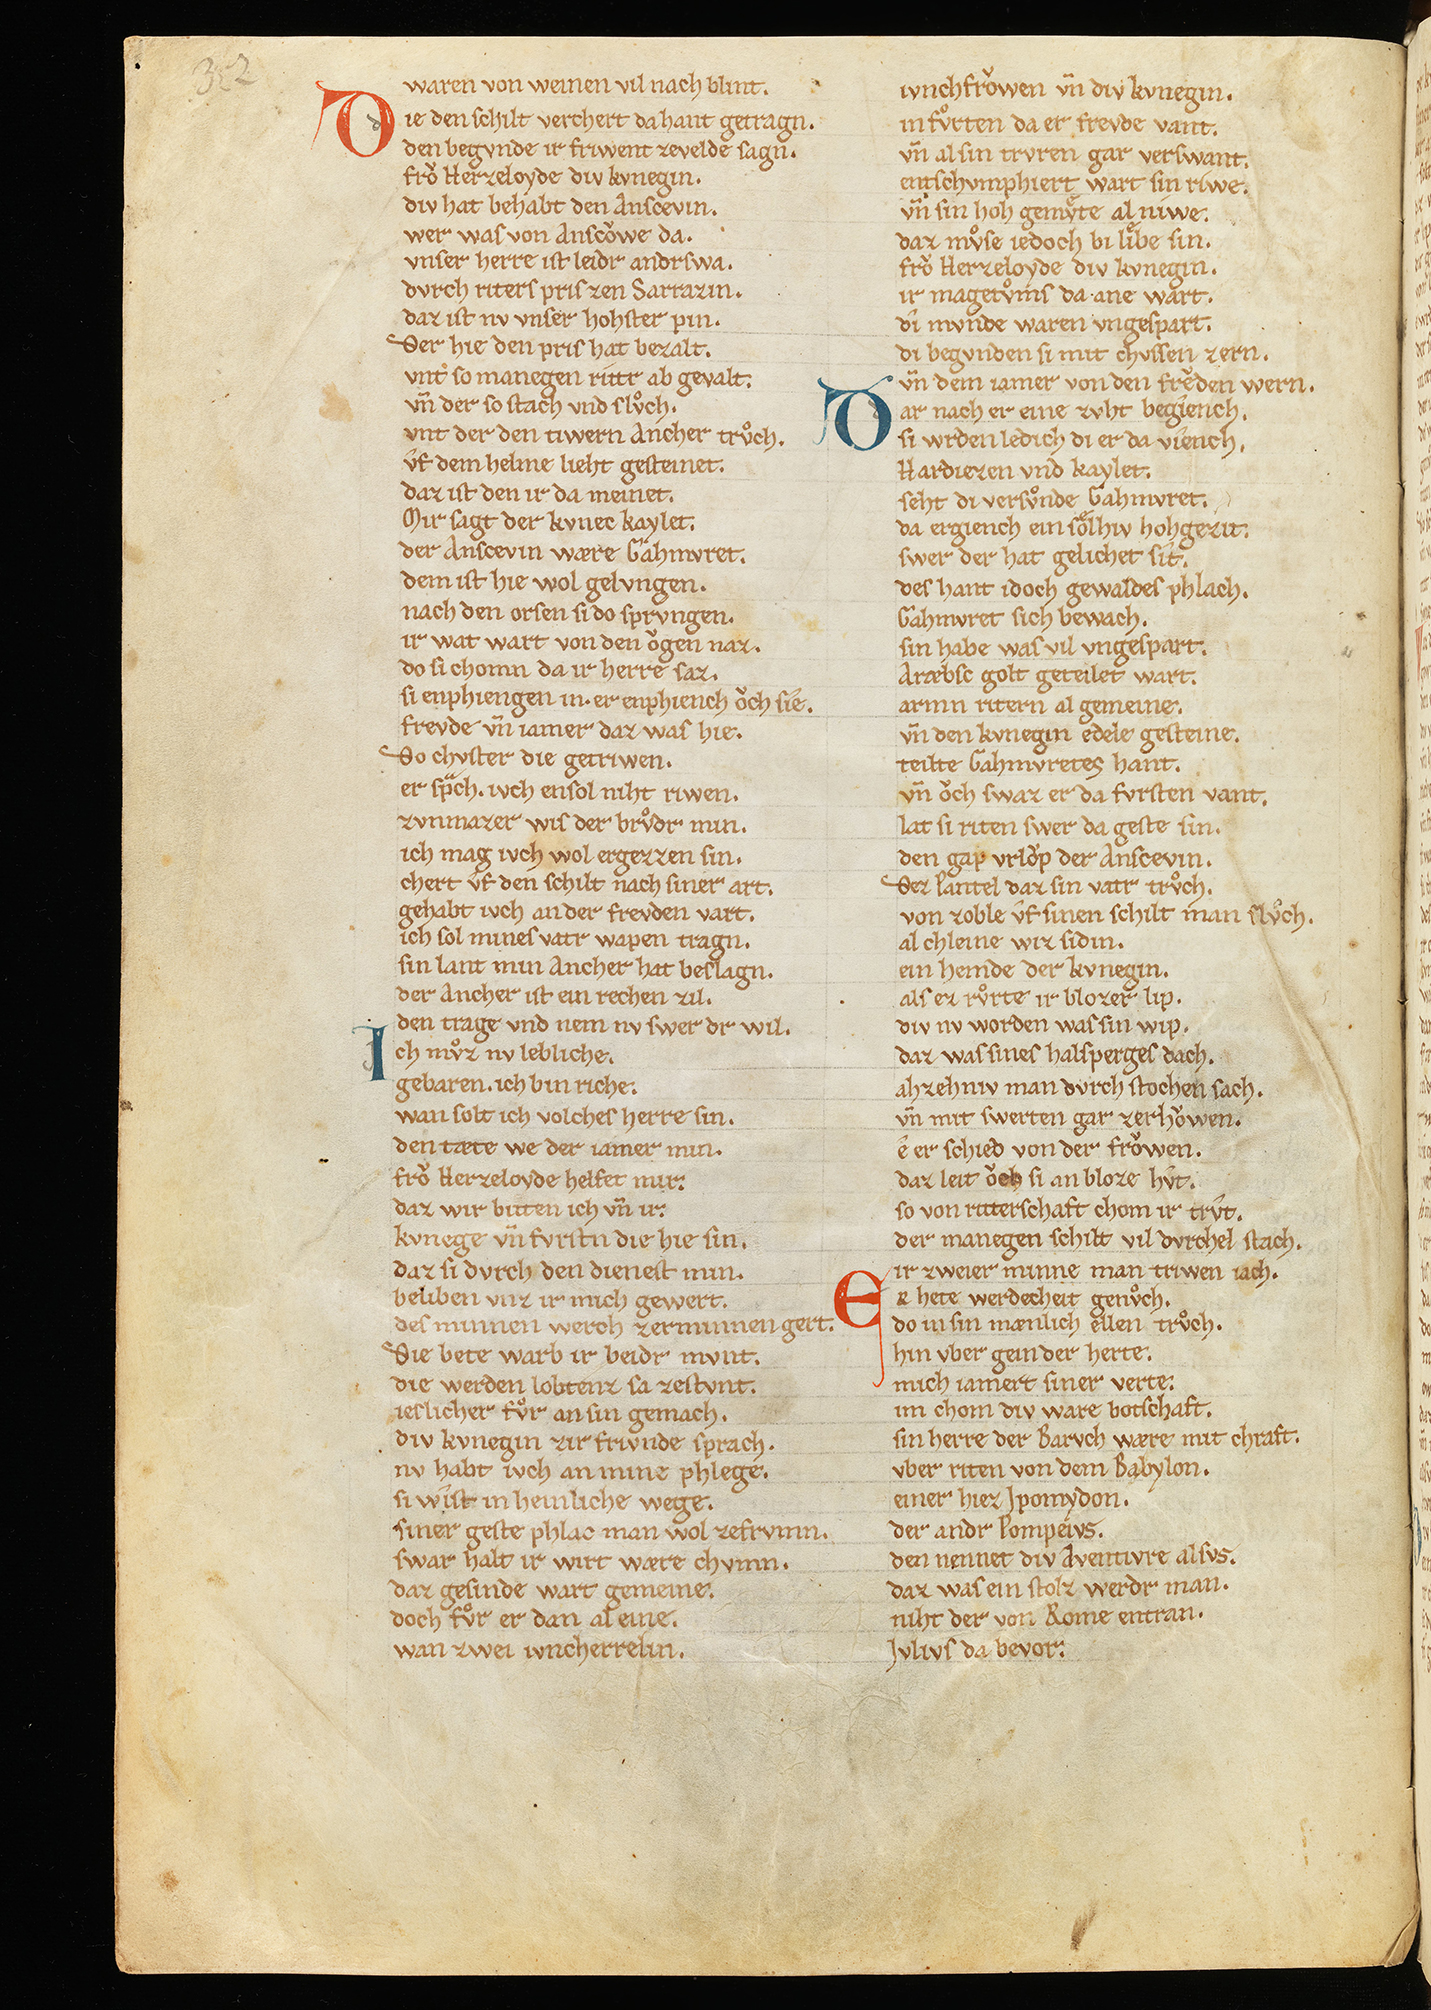 352
waren von weinen vil nach blint.
Die den schilt verchert da hant getragn.
den begvnde ir friwent zevelde sagn.
frǒ Herzeloyde div kvnegin.
div hat behabt den Anscevin.
wer was von Anscǒwe da.
vnser herre ist leidr andrswa.
dvrch riters pris zen Sarrazin.
daz ist nv vnser hohster pin.
Der hie den pris hat bezalt.
vnt so manegen rittr ab gevalt.
vñ der so stach vnd slv̊ch.
vnt der den tiwern Ancher trv̊ch.
vf dem helme lieht gesteinet.
daz ist den ir da meinet.
Mir sagt der kvnec kaylet.
der Anscevin wære Gahmvret.
dem ist hie wol gelvngen.
nach den orsen si do sprvngen.
ir wat wart von den ǒgen naz.
do si chomn da ir herre saz.
si enphiengen in. er enphiench ǒch sie.
frevde vñ iamer daz was hie.
Do chvster die getriwen.
er spͣch. ivch ensol niht riwen.
zvnmazer wis der brv̊dr min.
ich mag ivch wol ergezzen sin.
chert v̂f den schilt nach siner art.
gehabt ivch an der frevden vart.
ich sol mines vatr wapen tragn.
sin lant min Ancher hat beslagn.
der Ancher ist ein rechen zil.
den trage vnd nem nv swer dr wil.
Ich mv̊z nv lebliche.
gebaren. ich bin riche.
wan solt ich volches herre sin.
den tæte we der iamer min.
frǒ Herzeloyde helfet mir.
daz wir bitten ich vñ ir.
kvnege vñ fvrstn die hie sin.
daz si dvrch den dienest min.
beliben vnz ir mich gewert.
des minnen werch zer minnen gert.
Die bete warb ir beidr mvnt.
die werden lobtenz sa zestvnt.
ieslicher fv̊r an sin gemach.
div kvnegin zir frivnde sprach.
nv habt ivch an mine phlege.
si wîst in heinliche wege.
siner geste phlac man wol zefrvmn.
swar halt ir wirt wære chvmn.
daz gesinde wart gemeine.
doch fv̊r er dan al eine.
wan zwei ivncherrelin.
ivnchfrǒwen vñ div kvnegin.
in fv̊rten da er frevde vant.
vñ al sin trvren gar verswant.
entschvmphiert wart sin riwe.
vñ sin hoh gemv̊te al niwe.
daz mv̊se iedoch bi lîbe sin.
frǒ Herzeloyde div kvnegin.
ir magetv̊ms da. ane wart.
di mvnde waren vngespart.
di begvnden si mit chvssen zern.
vñ dem iamer von den frevden wern.
Dar nach er eine zvht begiench.
si wrden ledich di er da viench.
Hardiezen vnd kaylet.
seht di versv̊nde Gahmvret.
da ergiench ein sǒlhiv hohgezit.
swer der hat gelichet sit.
des hant idoch gewaldes phlach.
Gahmvret sich bewach.
sin habe was vil vngespart.
Aræbsc golt geteilet wart.
armn ritern al gemeine.
vñ den kvnegin edele gesteine.
teilte Gahmvretes hant.
vñ ǒch swaz er da fvrsten vant.
lat si riten swer da geste sin.
den gap vrlǒp der Anscevin.
Dez Pantel daz sin vatr trv̊ch.
von zoble v̂f sinen schilt man slv̊ch.
al chleine wiz sidin.
ein hemde der kvnegin.
als ez rv̊rte ir blozer lip.
div nv worden was sin wip.
daz was sines halsperges dach.
ahzehniv man dvrch stochen sach.
vñ mit swerten gar zerhǒwen.
ê er schied von der frǒwen.
daz leit ǒch si an bloze hv̂t.
so von ritterschaft chom ir trv̂t.
der manegen schilt vil dvrchel stach.
ir zweier minne man triwen iach.
Er hete werdecheit genv̊ch.
do in sin mænlich ellen trv̊ch.
hin vber gein der herte.
mich iamert siner verte.
im chom div ware botschaft.
sin herre der Barvch wære mit chraft.
vber riten von dem Babylon.
einer hiez Jpomydon.
der andr Pompeivs.
den nennet div Aventivre alsvs.
daz was ein stolz werdr man.
niht der von Rome entran.
Jvlivs da bevor.